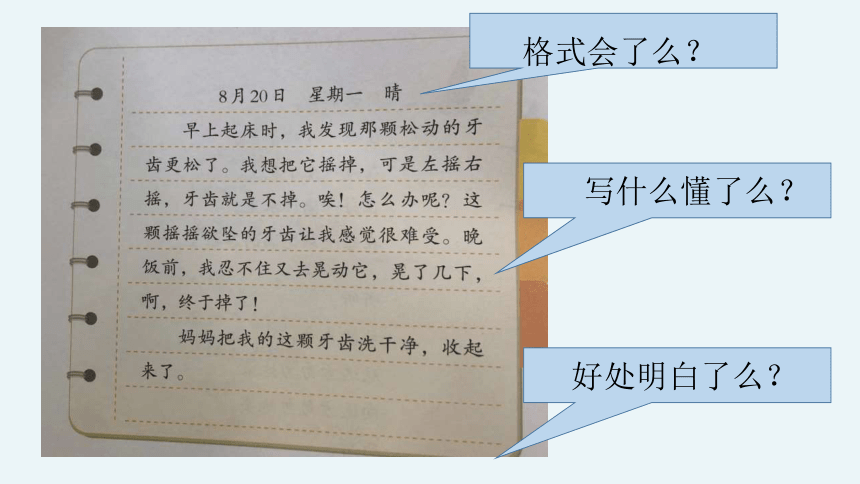 格式会了么?
8月20日 星期一 晴
早上起床时,我发现那颗松动的牙
齿更松了。我想把它摇掉,可是左摇右
摇,牙齿就是不掉。唉!怎么办呢?这
颗摇摇欲坠的牙齿让我感觉很难受。晚
饭前,我忍不住又去晃动它,晃了几下,
啊,终于掉了!
妈妈把我的这颗牙齿洗干净,收起
来了。
写什么懂了么?
好处明白了么?